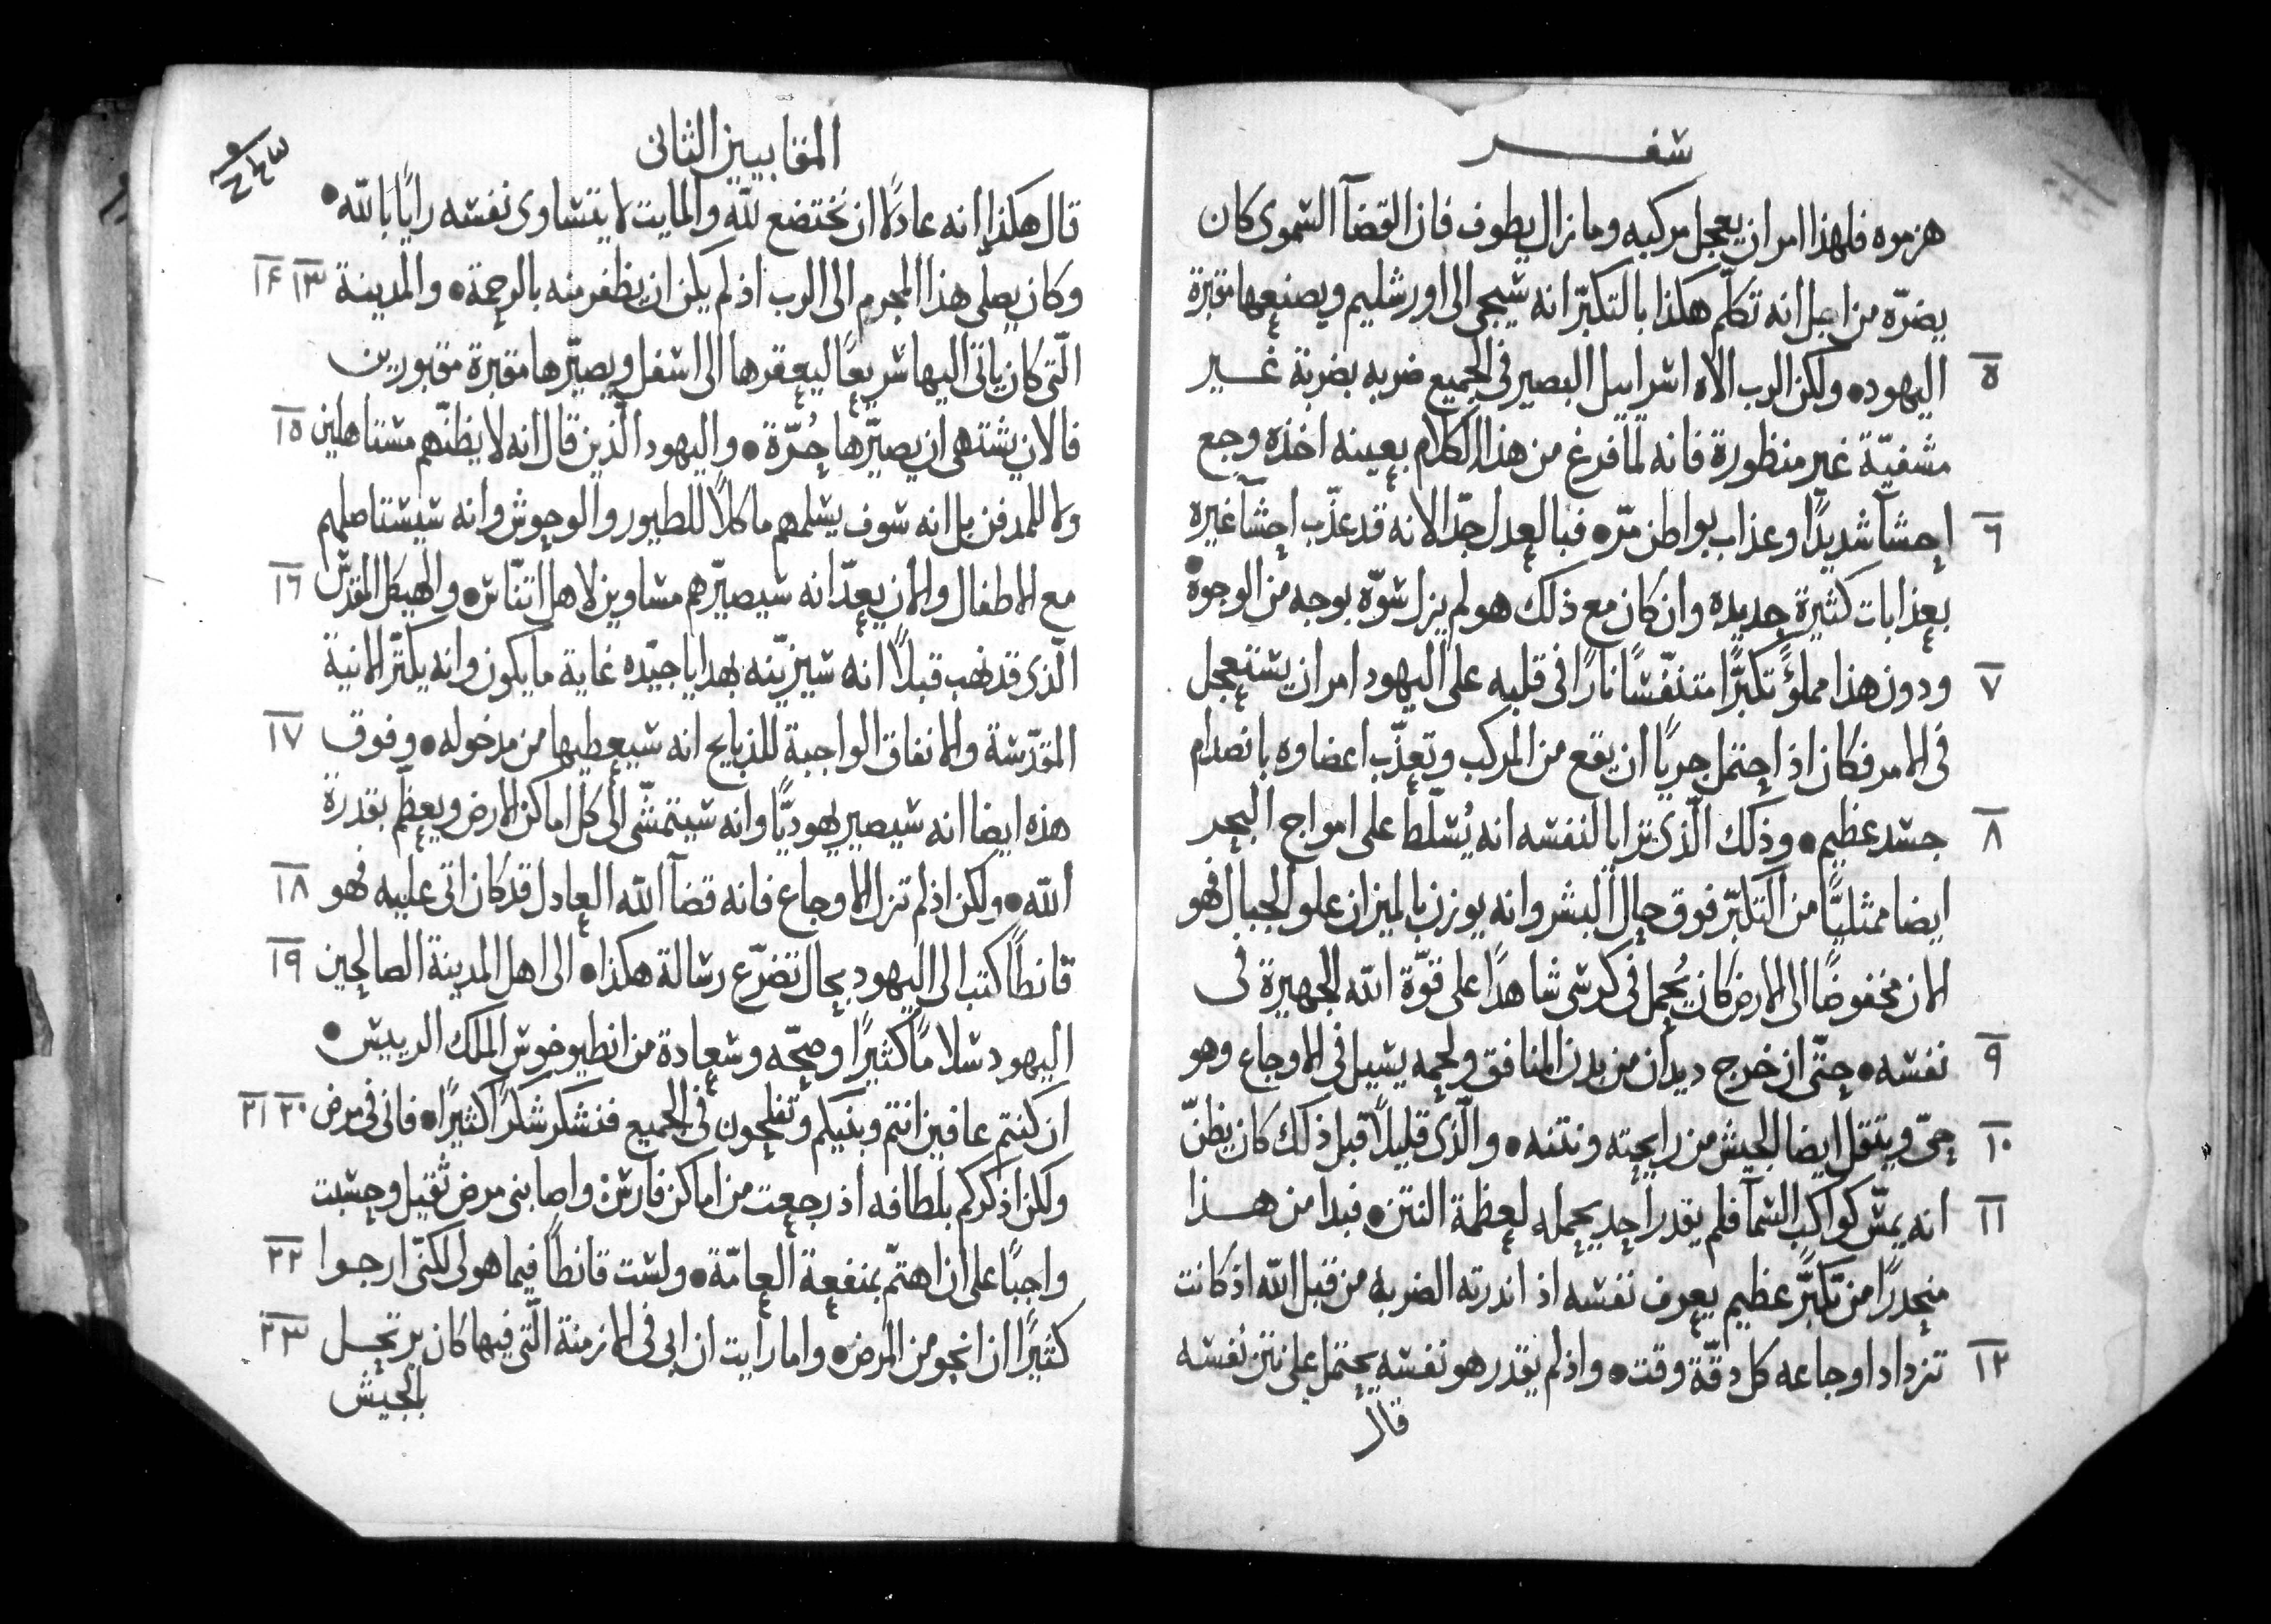 سفر
هزموه فلهذا امر ان يعجل مركبه وما زال يطوف فان القضآ السموى كان
يضرّه من اجل انه تكلّم هكذا بالتكبّر انه سيجى الى اورشليم ويصنعها مقبرة
٥ اليهود • ولكن الرب الاه اسراييل البصير فى الجميع ضربه بضربة غير
مشفيّة غير منظورة فانه لما فرغ من هذا الكلام بعينه اخذه وجع
٦ احشآ شديدًا وعذاب بواطن مرّ • فبالعدل جدّا لانه قد عذّب احشآ غيره
بعذابات كثيرة جديده وان كان مع ذلك هو لم يزل سوّه بوجه من الوجوة •
٧ ودون هذا مملوًّ تكبّرًا متنفّسًا نارًا فى قلبه على اليهود امر ان يستعجل
فى الامر فكان اذ احتمل جريًا ان يقع من المركب وتعذّب اعضاوه بانصدام
٨ جسد عظيم • وذلك الّذى تزايا لنفسه انه يُسلّط على امواج البحر
ايضا ممثليًّا من التكبّر فوق حال البشر وانه يوزن بالميزان علو الجبال فهو
الان مخفوضًا الى الارض كان يُحمل فى كرسى شاهدًا على قوّة الله الجهيرة فى
٩ نفسه • حتّى ان خرج ديدان من بدن المنافق ولحمه يسيل فى الاوجاع وهو
١٠ حىّ ويتقل ايضا الجيش من رايحته ونتنه • والّذى قليلًا قبل ذلك كان يظنّ
١١ انه يمسّ كواكب السمآ فلم يقدر احد يحمله لعظمة النتن • فبدا من هذا
منحدرًا من تكبّر عظيم يعرف نفسه اذ اندرته الضربه من قبل الله اذ كانت
١٢ تزداد اوجاعه كل دقّة وقت • واذ لم يقدر هو نفسه يحتمل على نتن نفسه
قال
المقابيين الثانى
قال هكذا انه عادلًا ان نختضع لله والمايت لا يتساوى نفسه رايًا بالله •
وكان يصلّى هذا المجرم الى الرب اذ لم يكن ان يظفر منه بالرحمة • والمدينة ١٣ ١٤
الّتى كان ياتى اليها سريعًا ليعقرها الى اسفل ويصيّرها مقبرة مقبورين
فالان يشتهى ان يصيّرها حُرّة • واليهود الّذين قال انه لا يظنّهم مستاهلين ١٥
ولا للمدفن بل انه سوف يسلمهم ماكلًا للطيور والوحوش وانه سيستاصلهم
مع الاطفال والان يعدّ انه سيصيّرهم مساوين لاهل اتنّاس • والهيكل المقدّس ١٦
الّذى قد نهب قبلًا انه سيزيّنه بهدايا جيّده غاية ما يكون وانه يكثّر الانية
المقدّسة والانفاق الواجبة للذبايح انه سيعطيها من مدخوله • وفوق ١٧
هذه ايضا انه سيصير يهوديًّا وانه سيتمشّى الى كل اماكن الارض ويعظّم بقدرة
الله • ولكن اذ لم تزل الاوجاع فانه قضآ الله العادل قد كان اتى عليه فهو ١٨
قانطًا كتب الى اليهود بحال تضرّع رسالة هكذا • الى اهل المدينة الصالحين ١٩
اليهود سلامًا كثيرًا وصحّه وسعادة من انطيوخوس الملك الرييس •
ان كنتم عافين انتم وبنيكم وتفلحون فى الجميع فنشكر شكرًا كثيرًا • فانى فى مرض ٢٠ ٢١
ولكن اذكركم بلطافه اذ رجعت من اماكن فارس واصابنى مرض ثقيل وحسبت
واجبًا على ان اهتمّ بمنفعة العامّة • ولست قانطًا فيما هو لى لكنّى ارجوا ٢٢
كثيرًا ان انجو من المرض • واما رايت ان ابى فى الازمنة الّتى فيها كان يرتحل ٢٣
بالجيش